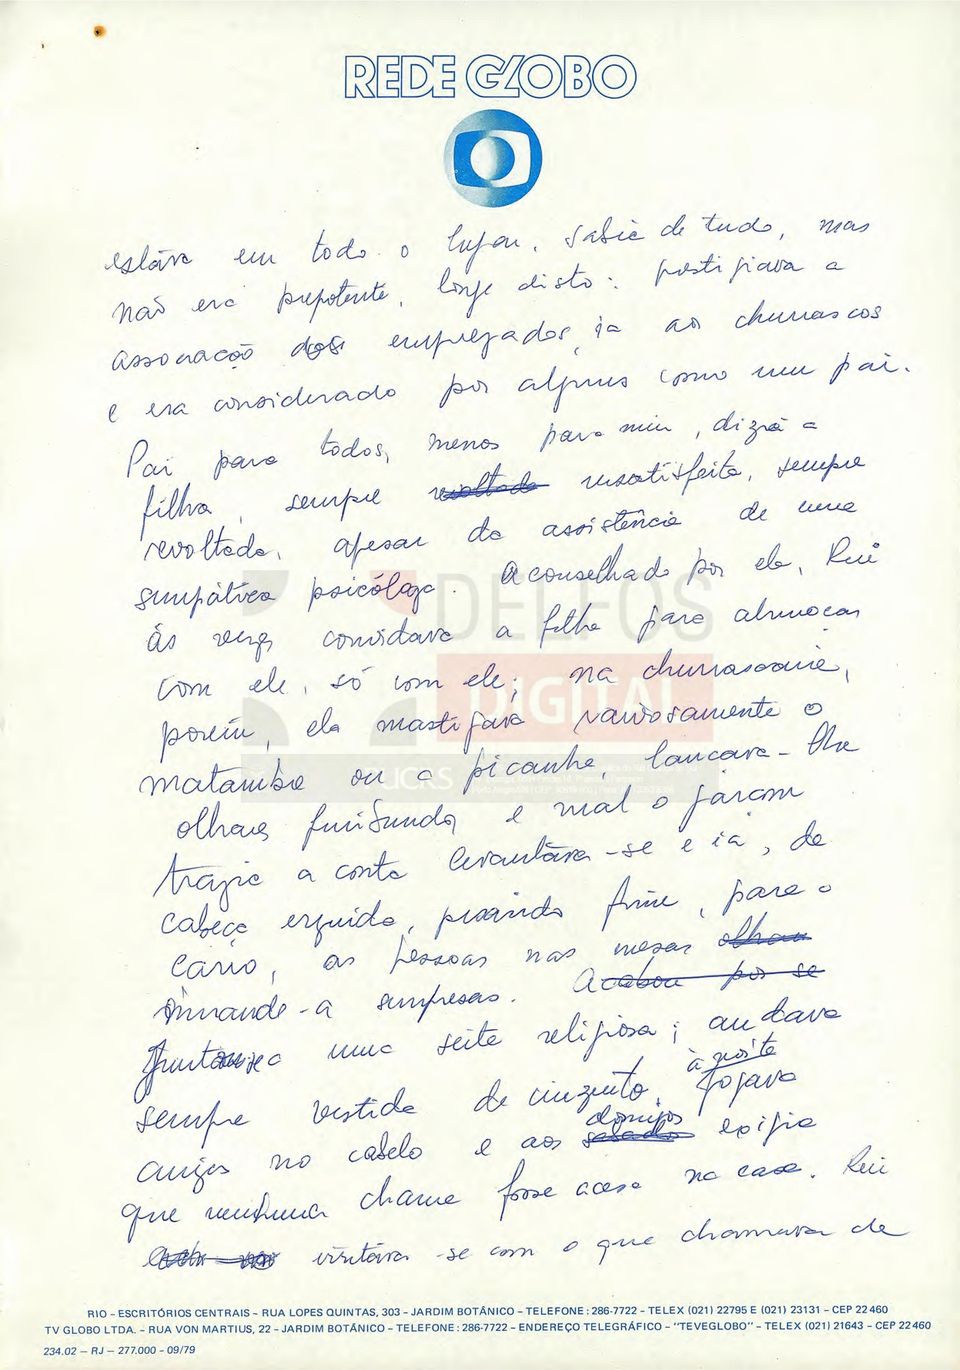 REDE GLOBO
estava em todo o lugar, sabia de tudo, mas
não era prepotente, longe disto: prestigiava a
associação dos empregados, ia ao churrascos
e era considerado por alguns como um pai.
Pai para todos, menos para mim, dizia a
filha, sempre revoltada insatisfeita, sempre
revoltada, apesar da assistência de uma
simpática psicóloga. Aconselhado por ela, Rui
às vezes convidava a filha para almoçar
com ele, só com ele; na churrascaria,
porém, ela mastigava raivosamente o
matambre ou a picanha, lançava-lhe
olhares furibundos e mal o garçom
trazia a conta levantava-se e ia, de
cabeça erguida, pisando firme, para o
carro, as pessoas nas mesas olhan
mirando-a surpresas. Acabou por se
Juntou-se a uma seita religiosa; andava
sempre vestida de cinzento, à noite jogava
cinzas no cabelo e aos sábados domingos exigia
que nenhuma chama fosse acesa na casa. Rui
irritava-se com o que chamava de
DELFOS
DIGITAL
PUCRS
RIO - ESCRITÓRIOS CENTRAIS - RUA LOPES QUINTAS, 303 - JARDIM BOTÂNICO - TELEFONE: 286-7722 - TELEX (021) 22795 E (021) 23131 - CEP 22460
TV GLOBO LTDA. - RUA VON MARTIUS, 22 - JARDIM BOTÂNICO - TELEFONE: 286-7722 - ENDEREÇO TELEGRÁFICO - "TEVEGLOBO" - TELEX (021) 21643 - CEP 22460
234.02 - RJ - 277.000 - 09/79